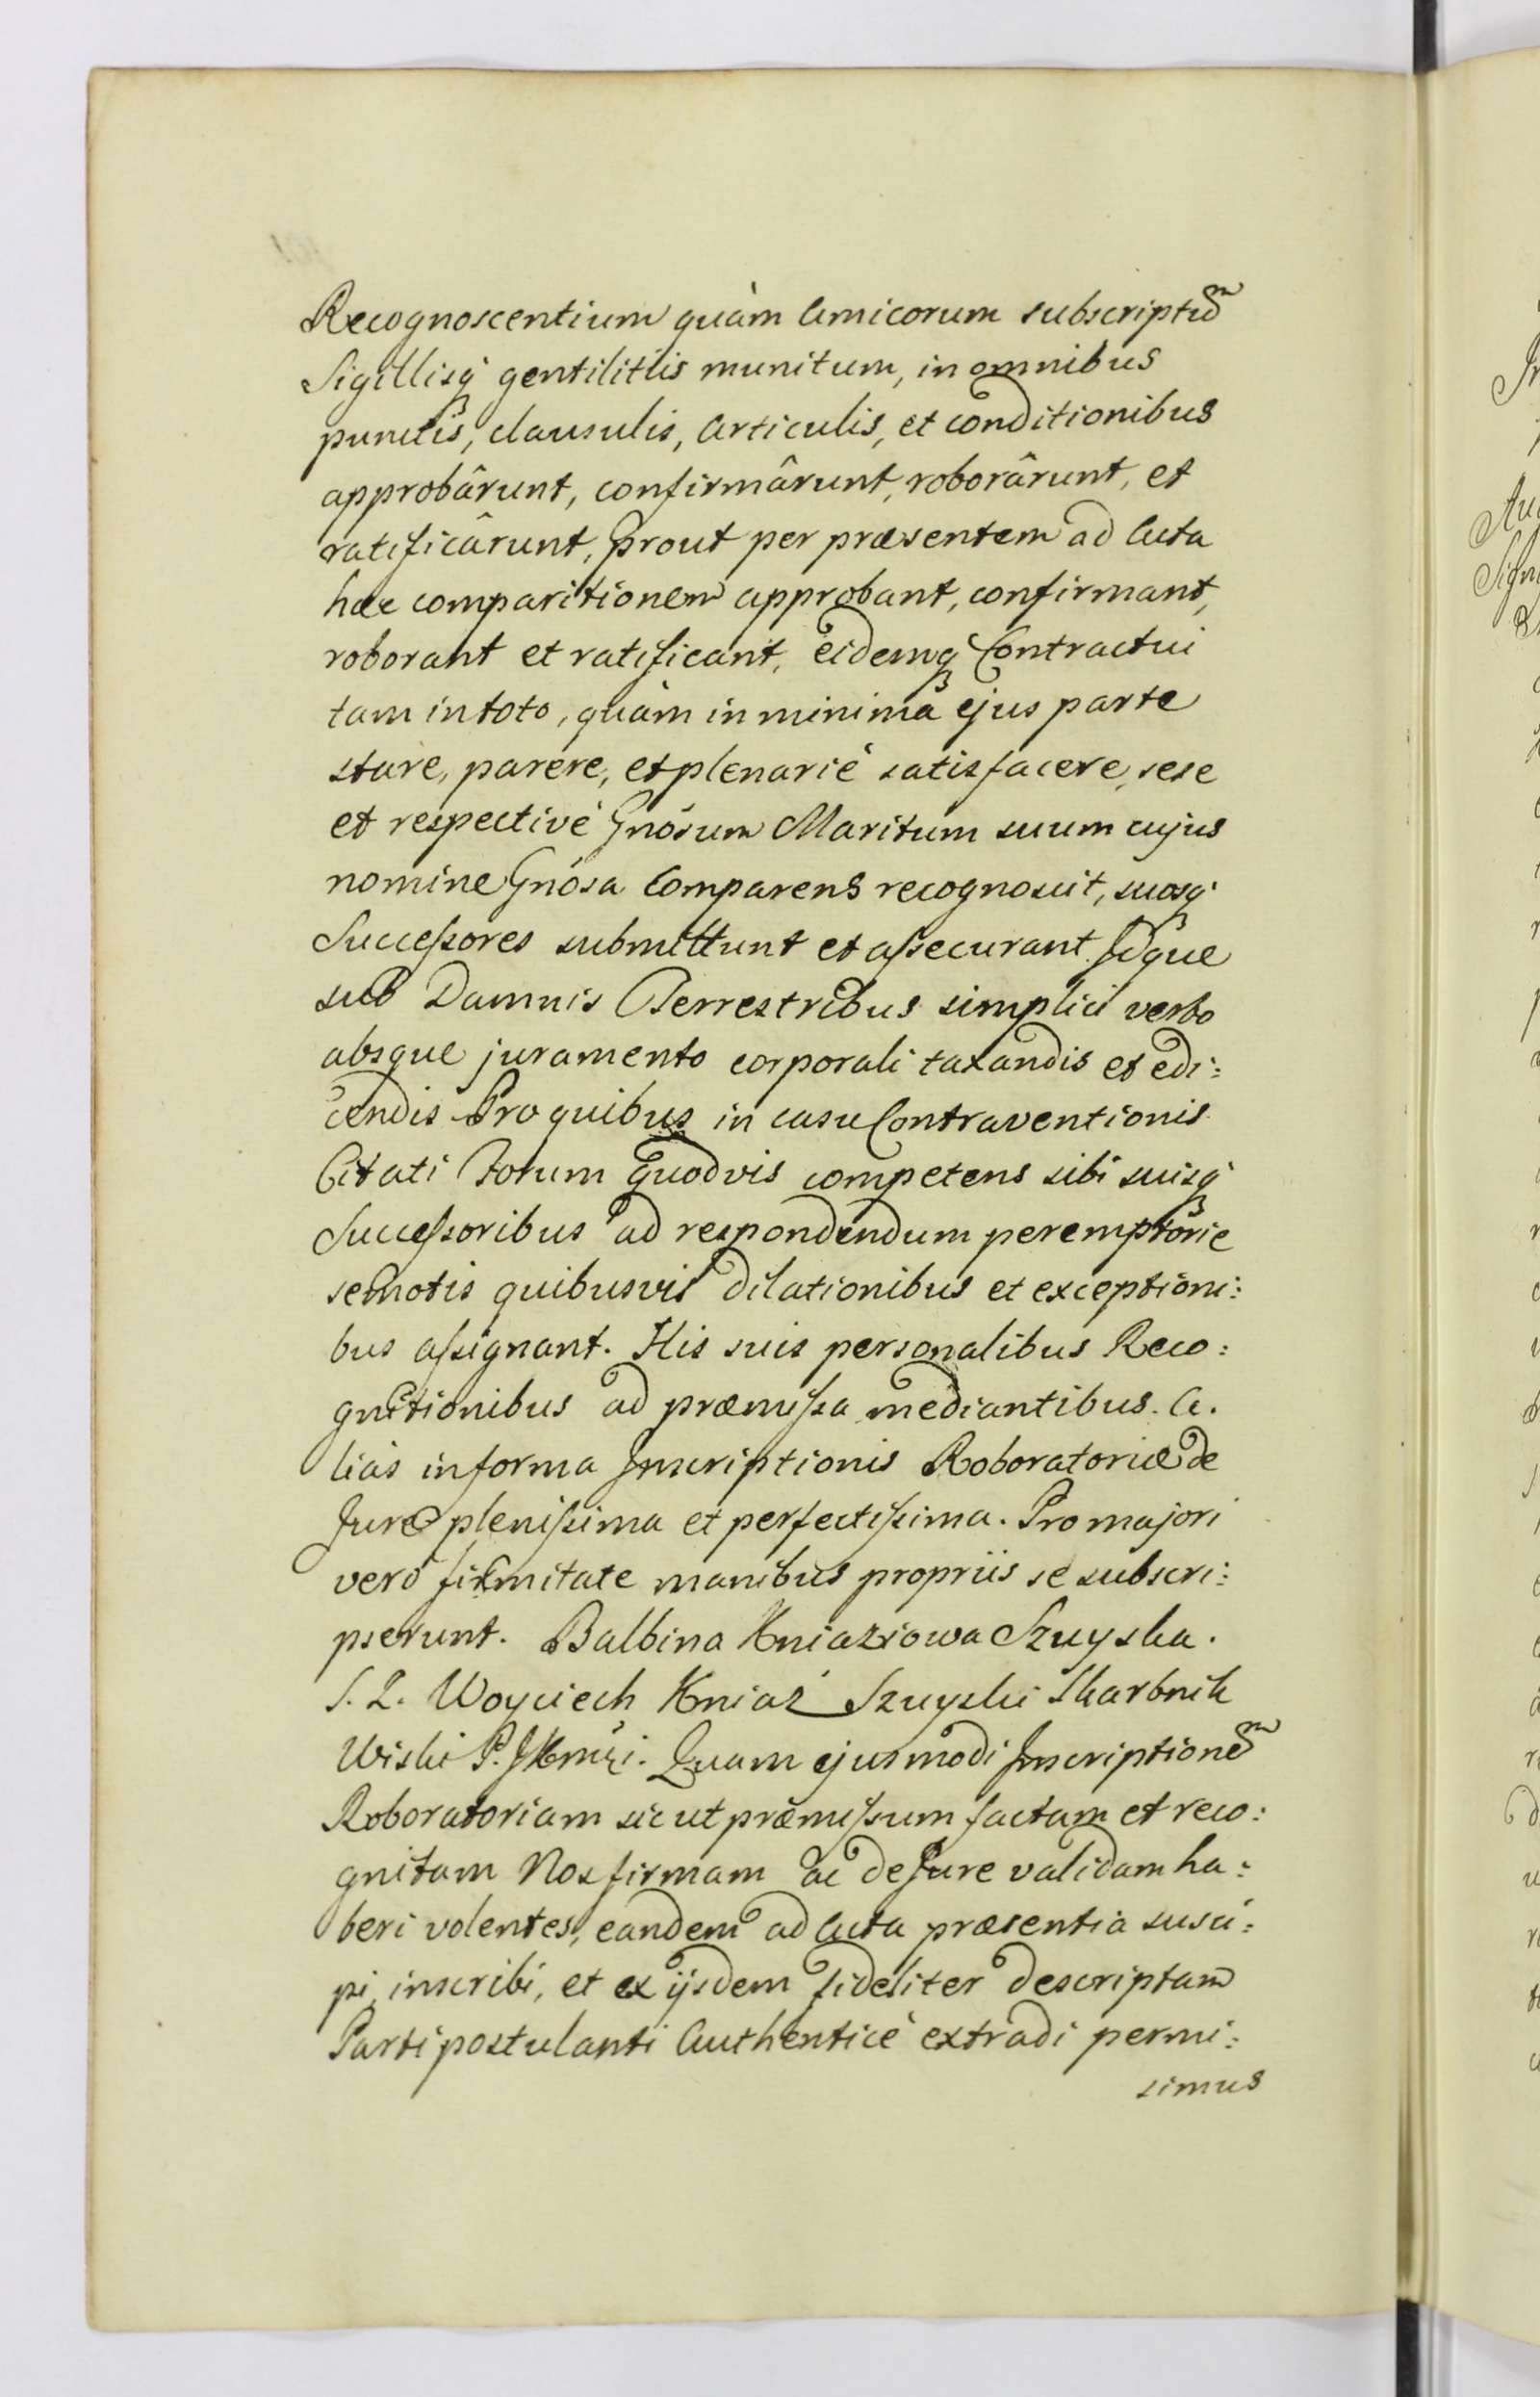 Recognoscentium quàm Amicorum subscriptũ
Sigillisq́ gentilitiis munitum, in omnibus
punctis, clausulis, Articulis, et conditionibus
approbârunt, confirmârunt, roborârunt, et
ratificârunt, prout per præsentem ad Acta
hæc comparitionem approbant, confirmant,
roborant et ratificant, eidemq́ Contractui
tam in toto, quàm in minimâ ejus parte
stare, parere, et plenariè satisfacere, sese
et respectivè Gnõsum Maritum suum cujus
nomine Gnõsa Comparens recognoscit, suosq́
Successores submittunt et assecurant. Idque
sub Damnis Terrestribus simplici verbo
absque juramento corporali taxandis et edi:
cendis Pro quibus in casu Contraventionis
Citati Forum quodvis competens sibi suisq́
Successoribus ad respondendum peremptoriè
semotis quibusvis dilationibus et exceptioni:
bus assignant. His suis personalibus Reco:
gnitionibus ad præmissa mediantibus. A.
liàs in forma Inscriptionis Roboratoriæ de
Jure plenissima et perfectissima. Pro majori
verò firmitate manibus propriis se subscri:
pserunt. Balbina Kniaziowa Szuyska.
S. L. Woyciech Kniaź Szuyski Skarbnik
Wiski P. Quam ejusmodi Inscriptionẽ
Roboratoriam sicut præmissum factam et reco:
gnitam Nos firmam ac de Jure validam ha:
beri volentes, eandem ad Acta præsentia susci:
pi, inscribi, et ex ijsdem fideliter descriptam
Parti postulanti Authenticè extradi permi:
simus